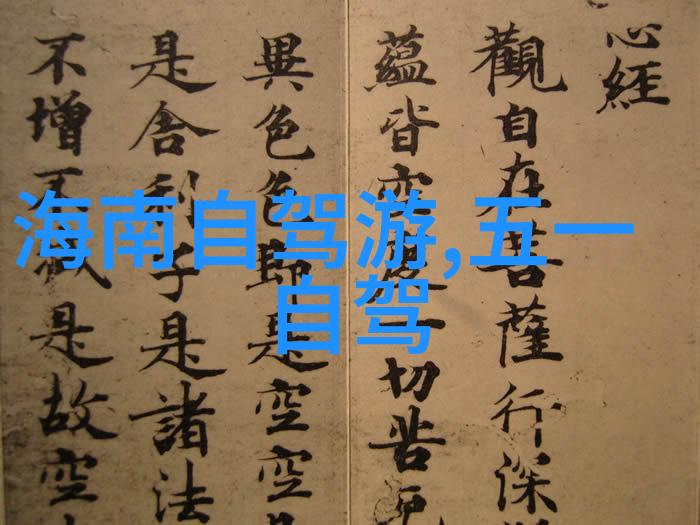 海南自驾游,五一
自驾
心經
觀自在菩薩行深
蘊皆空度一切苦厄
異色色即是空空
是舍利子是諸法
不增不減是故空